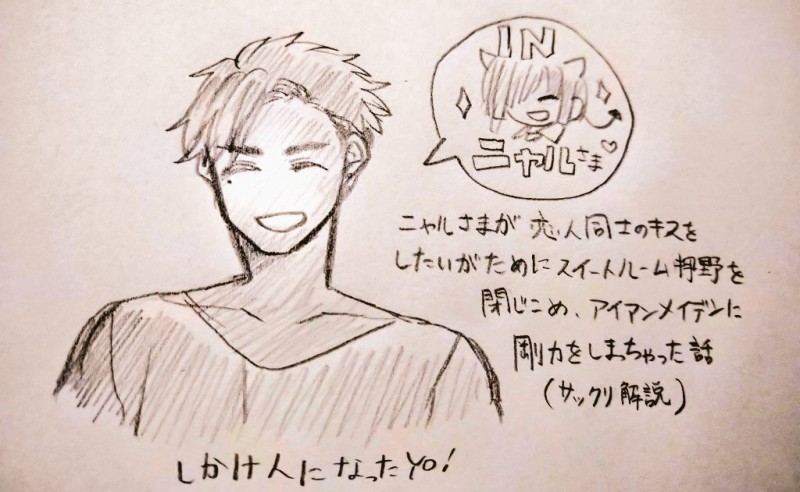 IN
ニャルさま♡
ニャルさまが 恋人同士のキスを
したいがために スイートルーム枡野を
閉じこめ、アイアンメイデンに
剛力をしまっちゃった話
(サックリ解説)
しかけ人になったYO!